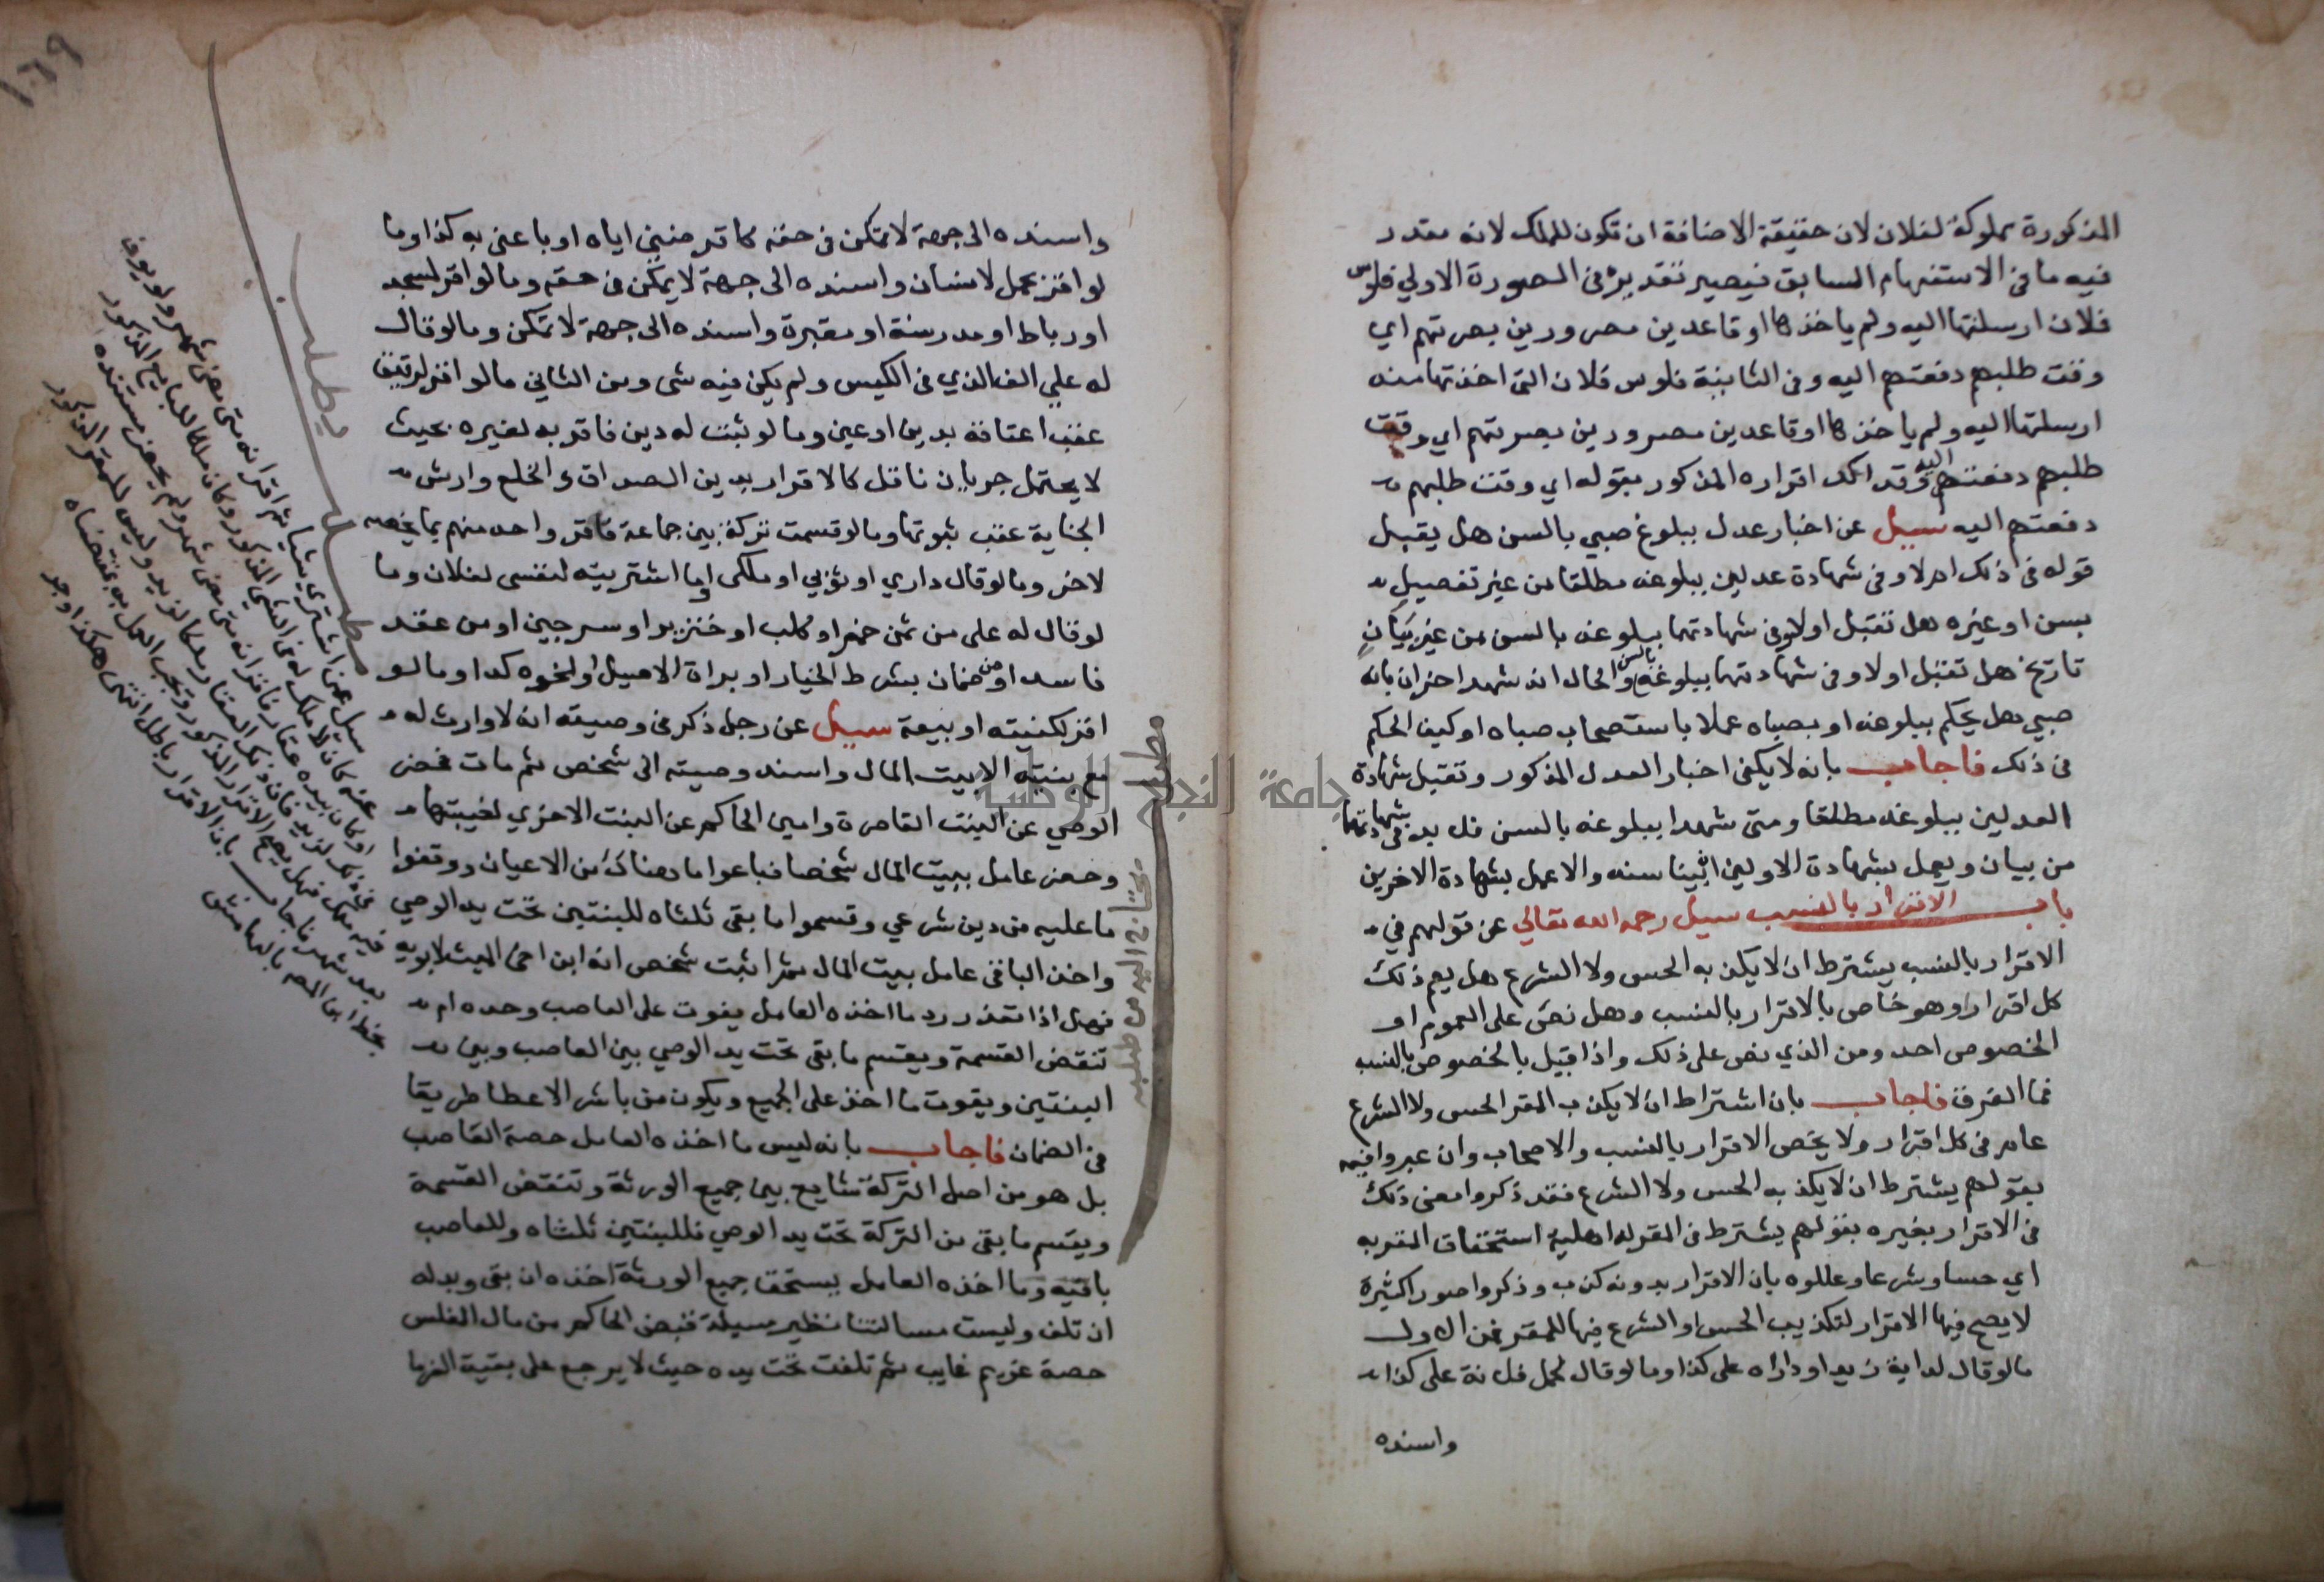 المذكورة مملوكة لفلان لان حقيقة الاضافة ان تكون للملك لانه مقدر
فيه ما في الاستفهام السابق فيصير تقديره في الصورة الاولي فلوس
فلان ارسلتها اليه ولم ياخذها اوقاعدين مصرورين بصرتهم اي
وقت طلبهم دفعتهم اليه وفي الثانية فلوس فلان التي اخذتها منه
ارسلتها اليه ولم ياخذها اوقاعدين مصرورين بصرتهم اي وقت
طلبهم دفعتهم اليه وقد اكد اقراره المذكور بقوله اي وقت طلبهم
دفعتهم اليه سيل عن اخبار عدل ببلوغ صبي بالسن هل يقبل
قوله في ذلك ام لا وفي شهادة عدلين ببلوغه مطلقا من غير تفصيل
بسن او غيره هل تقبل اولا وفي شهادتهما ببلوغه بالسن من غير بيان
تاريخ هل تقبل اولا وفي شهادتهما ببلوغه بالسن والحال انه شهد اخران بانه
صبي هل يحكم ببلوغه او بصباه عملا باستصحاب صباه او كيف الحكم
في ذلك فاجاب بانه لا يكفي اخبار العدل المذكور وتقبل شهادة
العدلين ببلوغه مطلقا ومتي شهدا ببلوغه بالسن فلا بد في شهادتهما
من بيان ويعمل بشهادة الاولين ان بينا سنه والا عمل بشهادة الاخرين
باب الاقرار بالنسب سيل رحمه الله تعالي عن قولهم في
الاقرار بالنسب يشترط ان لا يكذبه الحس ولا الشرع هل يعم ذلك
كل اقرار او هو خاص بالاقرار بالنسب وهل نص على العموم او
الخصوص احد ومن الذي نص على ذلك واذا قيل بالخصوص بالنسب
فما الفرق فاجاب بان اشتراط ان لا يكذب المقر الحس ولا الشرع
عام في كل اقرار ولا يخص الاقرار بالنسب والاصحاب وان عبروا فيه
بقولهم يشترط ان لا يكذبه الحس ولا الشرع فقد ذكروا معنى ذلك
في الاقرار بغيره بقولهم يشترط في المقر له اهلية استحقاق المقر به
اي حسا وشرعا وعللوه بان الاقرار بدونه كذب وذكروا صورا كثيرة
لا يصح فيها الاقرار لتكذيب الحس او الشرع فيها للمقر فمن الاول
ما لو قال لدابة زيد او داراه على كذا وما لو قال لحمل فلانة على كذا
واسنده
واسنده الى جهة لا تمكن في حقه كاقرضنيني اياه او باعني به كذا وما
لو اقر بحمل لانسان واسنده الى جهة لا يمكن في حقه وما لو اقر لمسجد
او رباط او مدرسة او مقبرة واسنده الى جهة لا تمكن وما لو قال
له علي الف الذي في الكيس ولم يكن فيه شى ومن الثاني ما لو اقر لرقيق
عقب اعتاقه بدين او عين وما لو ثبت له دين فاقر به لغيره بحيث
لا يحتمل جريان ناقل كالاقرار بدين الصداق والخلع وارش
الجناية عقب ثبوتها وما لو قسمت تركة بين جماعة فاقر واحد منهم بما يخصه
لاخر وما لو قال داري او ثوبي او ملكى او ما اشتريته لنفسى لفلان وما
لو قال له على من ثمن خمر او كلب او خنزير او سرجين او من عقد
فاسد او من ضمان بشرط الخيار او براة الاصيل او نحوه كدا وما لو
اقر لكنيسة او بيعة سيل عن رجل ذكر في وصيته انه لا وارث له
مع بنتيه الا بيت المال واسند وصيته الى شخص ثم مات فحضر
الوصي عن البنت القاصرة وامين الحاكم عن البنت الاخري لغيبتها
وحضر عامل ببيت المال شخصا فباعوا ما هناك من الاعيان ووفوا
ما عليه من دين شرعي وقسموا ما بقي ثلثاه للبنتين تحت يد الوصي
واخذ الباقي عامل بيت المال ثم اثبت شخص انه ابن اخي الميت لابويه
فهل اذا تعذر رد ما اخذه العامل يفوت على العاصب وحده ام
تنقض القسمة ويقسم ما بقي تحت يد الوصي بين العاصب وبين
البنتين ويفوت ما اخذ على الجميع ويكون من باشر الاعطا طريقا
في الضمان فاجاب بانه ليس ما اخذه العامل حصة العاصب
بل هو من اصل التركة شايع بين جميع الورثة وتنقض القسمة
ويقسم ما بقي من التركة تحت يد الوصي فللبنتين ثلثاه وللعاصب
باقيه وما اخذه العامل يستحق جميع الورثة اخذه ان بقي وبدله
ان تلف وليست مسالتنا نظير مسيلة قبض الحاكم من مال المفلس
حصة غريم غايب ثم تلفت تحت يده حيث لا يرجع على بقية الغرما
مطلب
مطلب
سيل عمن اشترى شيا ثم اقر انه متى مضى شهر ولم يوف